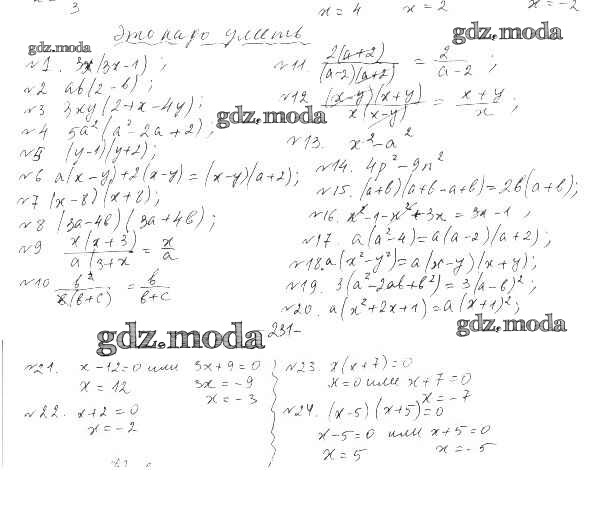 3
x = 4 x = 2 x = -2
Это надо уметь
gdz.moda
gdz.moda
№1. 3x(3x-1);
№2 ab(2-b);
№3 3xy(2+x-4y);
№4 5a²(a²-2a+2);
gdz.moda
№5 (y-1)(y+2);
№6 a(x-y)+2(x-y)=(x-y)(a+2);
№7 (x-8)(x+8);
№8 (3a-4b)(3a+4b);
№9 x(x+3)/a(3+x) = x/a
№10 b²/b(b+c) = b/b+c
№11 2(a+2)/(a-2)(a+2) = 2/a-2;
№12 (x-y)(x+y)/x(x-y) = x+y/x;
№13. x²-a²
№14. 4p²-9n²
№15. (a+b)(a+b-a+b)=2b(a+b);
№16. x²-1-x²+3x = 3x-1;
№17. a(a²-4)=a(a-2)(a+2);
№18. a(x²-y²)=a(x-y)(x+y);
№19. 3(a²-2ab+b²)=3(a-b)²;
№20. a(x²+2x+1)=a(x+1)²;
gdz.moda
-231-
gdz.moda
№21. x-12=0 или 3x+9=0
x = 12 3x = -9
x = -3
№22. x+2=0
x = -2
№23. x(x+7)=0
x=0 или x+7=0
x = -7
№24. (x-5)(x+5)=0
x-5=0 или x+5=0
x = 5 x = -5